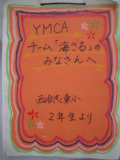 YMCA
チーム「海さる」の
みなさんへ
西合志東小
2年生より